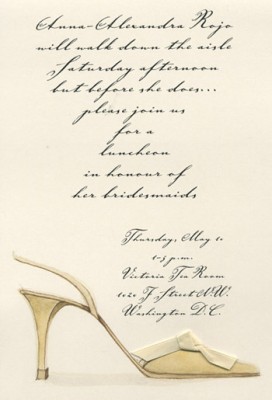 Anna-Alexandra Rojo
will walk down the aisle
Saturday afternoon
but before she does...
please join us
for a
luncheon
in honour of
her bridesmaids
Thursday, May 10
1-3 p.m.
Victoria Tea Room
1020 F Street N.W.
Washington D.C.